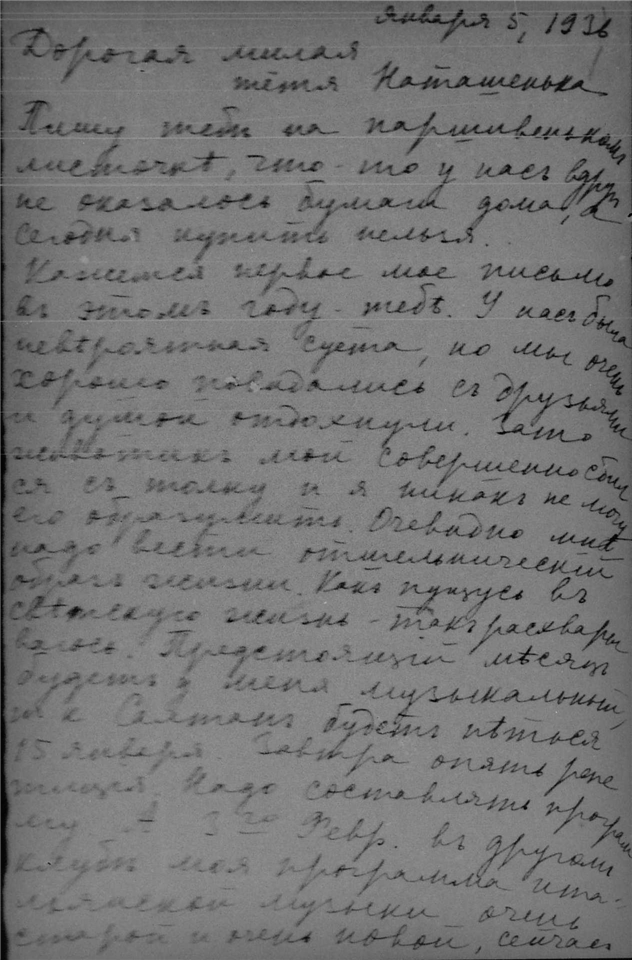 января 5, 1936
Дорогая милая
тётя Наташенька
Пишу тебѣ на паршивенькомъ
листочкѣ, что-то у насъ вдругъ
не оказалось бумаги дома, а
сегодня купить нельзя.
Кажется первое мое письмо
въ этомъ году - тебѣ. У насъ была
невѣроятная суета, но мы очень
хорошо повидались съ друзьями
и душой отдохнули. Зато
животикъ мой совершенно сбил
ся съ толку и я никакъ не могу
его образумить. Очевидно мнѣ
надо вести отшельническій
образъ жизни. Какъ пущусь въ
свѣтскую жизнь - такъ расхвары
ваюсь. Предстоящій мѣсяцъ
будетъ у меня музыкальный,
т к Салтанъ будетъ пѣться
15 января. Завтра опять репе
тиція. Надо составлять програм
му А 3го Февр. въ другомъ
клубѣ моя программа ита-
льянской музыки очень
старой и очень новой, сейчасъ